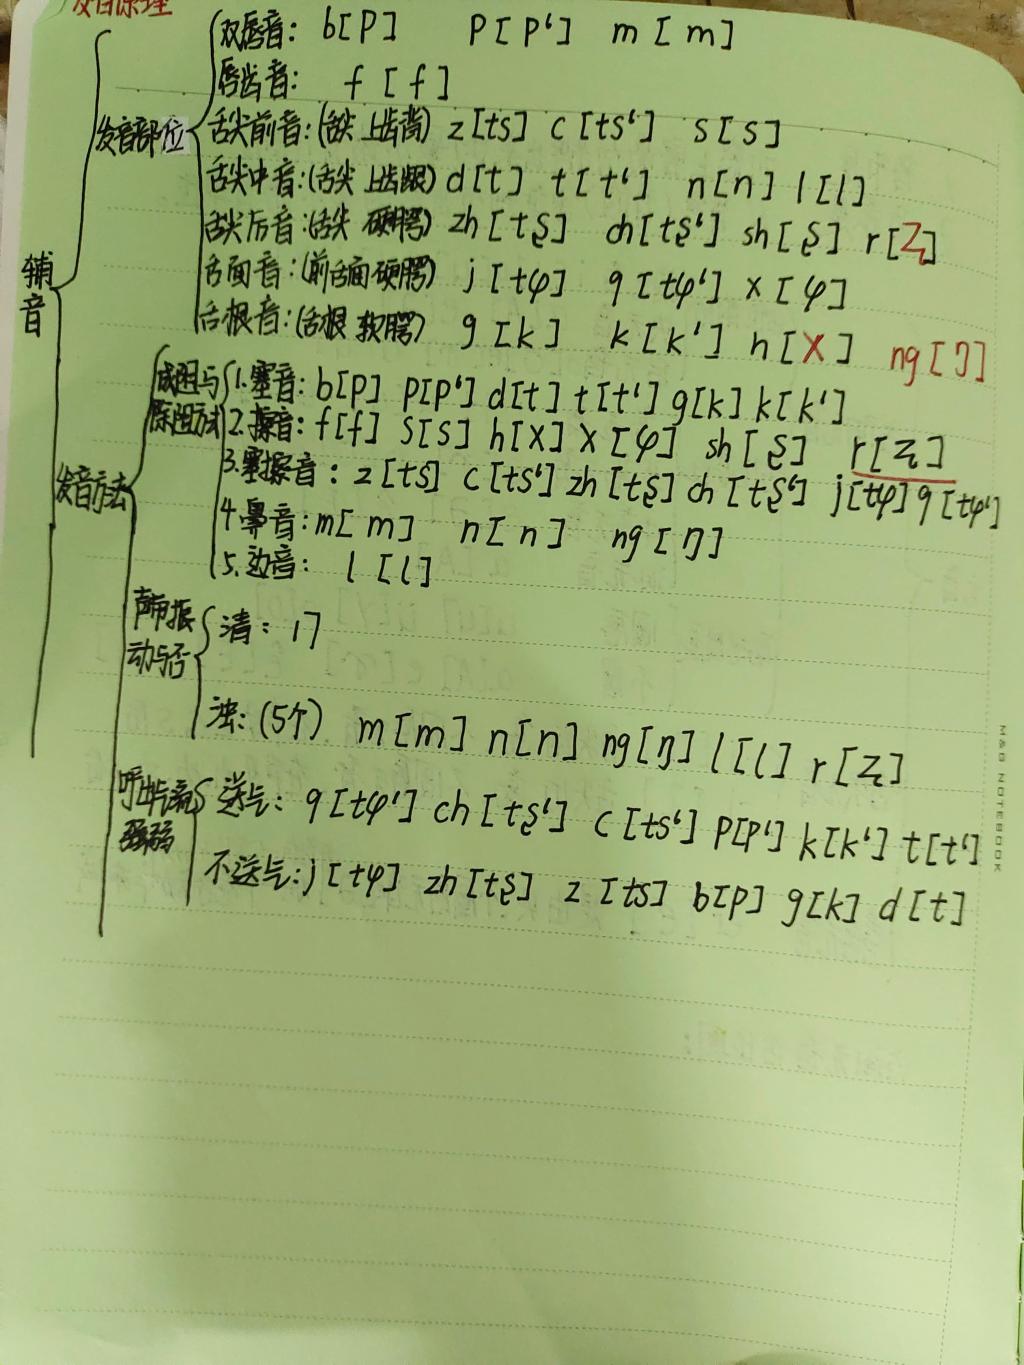 发音原理
双唇音: b[p] p[p‘] m[m]
唇齿音: f[f]
发音部位
舌尖前音:(舌尖 上齿背) z[ts] c[ts‘] s[s]
舌尖中音:(舌尖 上齿龈) d[t] t[t‘] n[n] l[l]
舌尖后音:(舌尖 硬腭) zh[tʂ] ch[tʂ‘] sh[ʂ] r[ʐ]
舌面音:(前舌面 硬腭) j[tφ] q[tφ‘] x[φ]
舌根音:(舌根 软腭) g[k] k[k‘] h[x] ng[ŋ]
辅音
成阻与除阻方式
1.塞音: b[p] p[p‘] d[t] t[t‘] g[k] k[k‘]
2.擦音: f[f] s[s] h[x] x[φ] sh[ʂ] r[ʐ]
3.塞擦音: z[ts] c[ts‘] zh[tʂ] ch[tʂ‘] j[tφ] q[tφ‘]
4.鼻音: m[m] n[n] ng[ŋ]
5.边音: l[l]
发音方法
声带振动与否
清: 17
浊:(5个) m[m] n[n] ng[ŋ] l[l] r[ʐ]
呼出气流强弱
送气: q[tφ‘] ch[tʂ‘] c[ts‘] p[p‘] k[k‘] t[t‘]
不送气: j[tφ] zh[tʂ] z[ts] b[p] g[k] d[t]
M&G NOTEBOOK